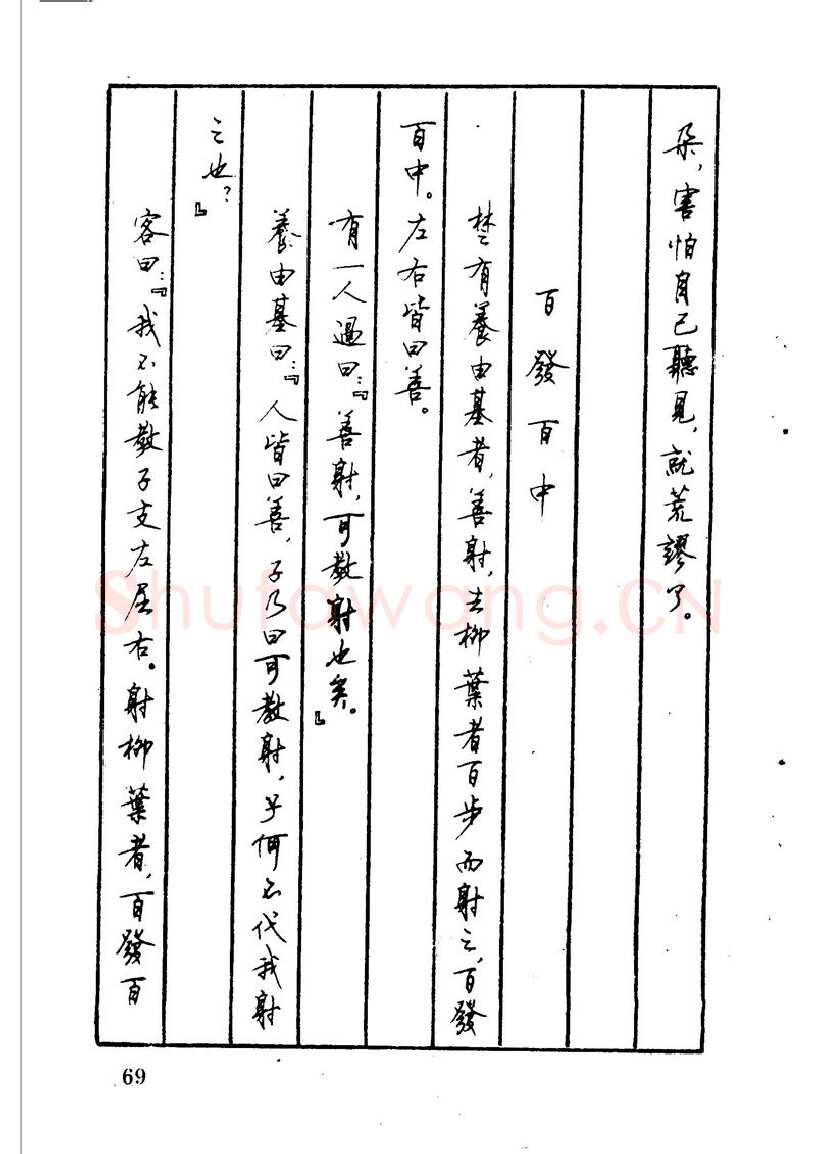 朵，害怕自己聽見，就荒謬了。
百發百中
楚有養由基者，善射，去柳葉者百步而射之，百發
百中。左右皆曰善。
有一人過曰：『善射，可教射也矣。』
養由基曰：『人皆曰善，子乃曰可教射，子何不代我射
之也？』
客曰：『我不能教子支左屈右。射柳葉者，百發百
69
Shufawang.CN